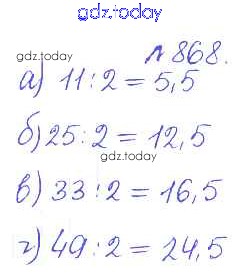 gdz.today
№ 868.
gdz.today
а) 11 : 2 = 5,5
б) 25 : 2 = 12,5
gdz.today
в) 33 : 2 = 16,5
г) 49 : 2 = 24,5
gdz.today